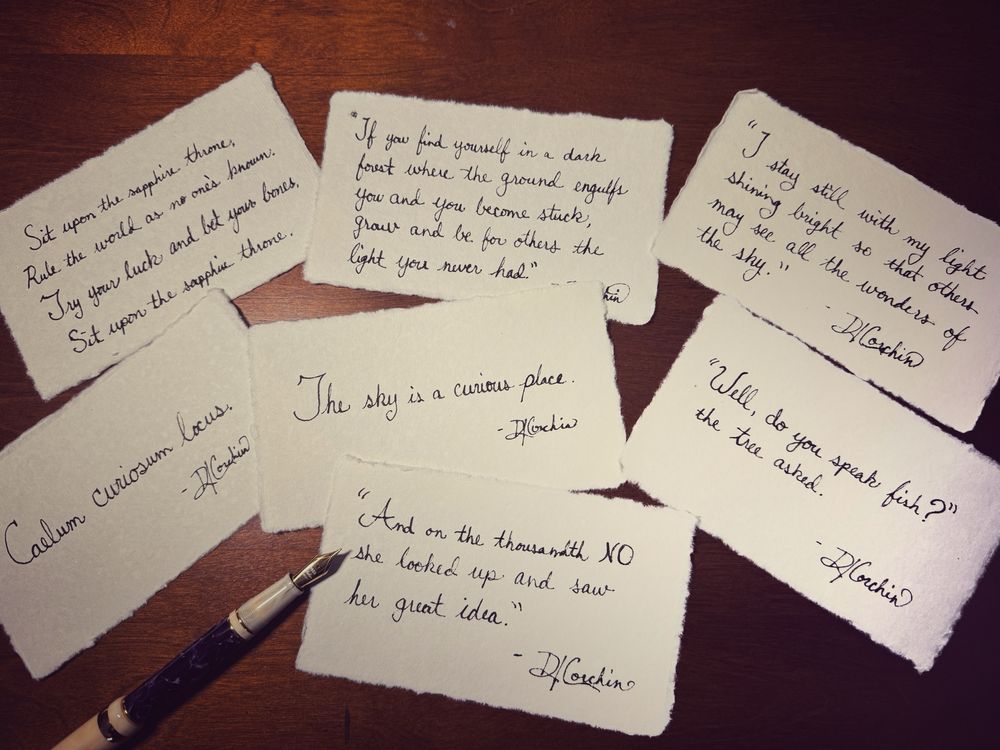 Sit upon the sapphire throne,
Rule the world as no one's known.
Try your luck and bet your bones,
Sit upon the sapphire throne.
"If you find yourself in a dark
forest where the ground engulfs
you and you become stuck,
grow and be for others the
light you never had."
"I stay still with my light
shining bright so that others
may see all the wonders of
the sky."
- DJCorchin
Caelum curiosum locus.
- DJCorchin
The sky is a curious place.
- DJCorchin
"Well, do you speak fish?"
the tree asked.
- DJCorchin
"And on the thousandth NO
she looked up and saw
her great idea."
- DJCorchin